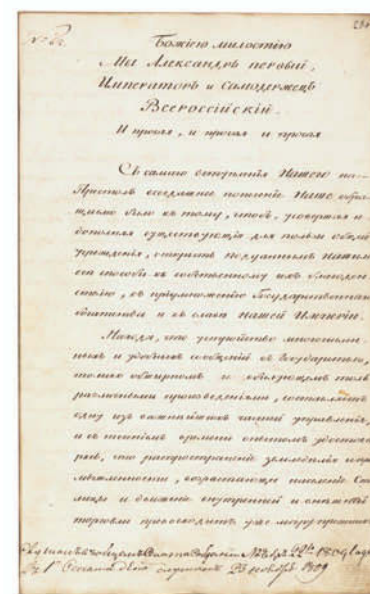 Божіею милостію
Мы Александръ первый,
Императоръ и Самодержецъ
Всероссійскій.
И прочая, и прочая и прочая
Съ самаго вступленія Нашего на
Престолъ всегдашнее попеченіе Наше обра-
щено было къ тому, чтобъ, утверждая и
дополняя существующія для пользы общей
учрежденія, открыть подданнымъ Нашимъ
способы къ собственному ихъ благоден-
ствію, къ пріумноженію Государственнаго
богатства и къ славѣ Нашей Имперіи.
Находя, что устройство
и удобныхъ сообщеній въ Государствѣ,
толико обширномъ и
различными произведеніями, составляетъ
одну изъ важнѣйшихъ частей управленія,
и съ теченіемъ времени опытомъ
что распространеніе земледѣлія и про-
мышленности, возрастающее населеніе Сто-
лицы и движеніе внутренней и внѣшней
торговли превосходятъ уже мѣру прежнихъ
Ноября 22го 1809 года
25 ноября 1809